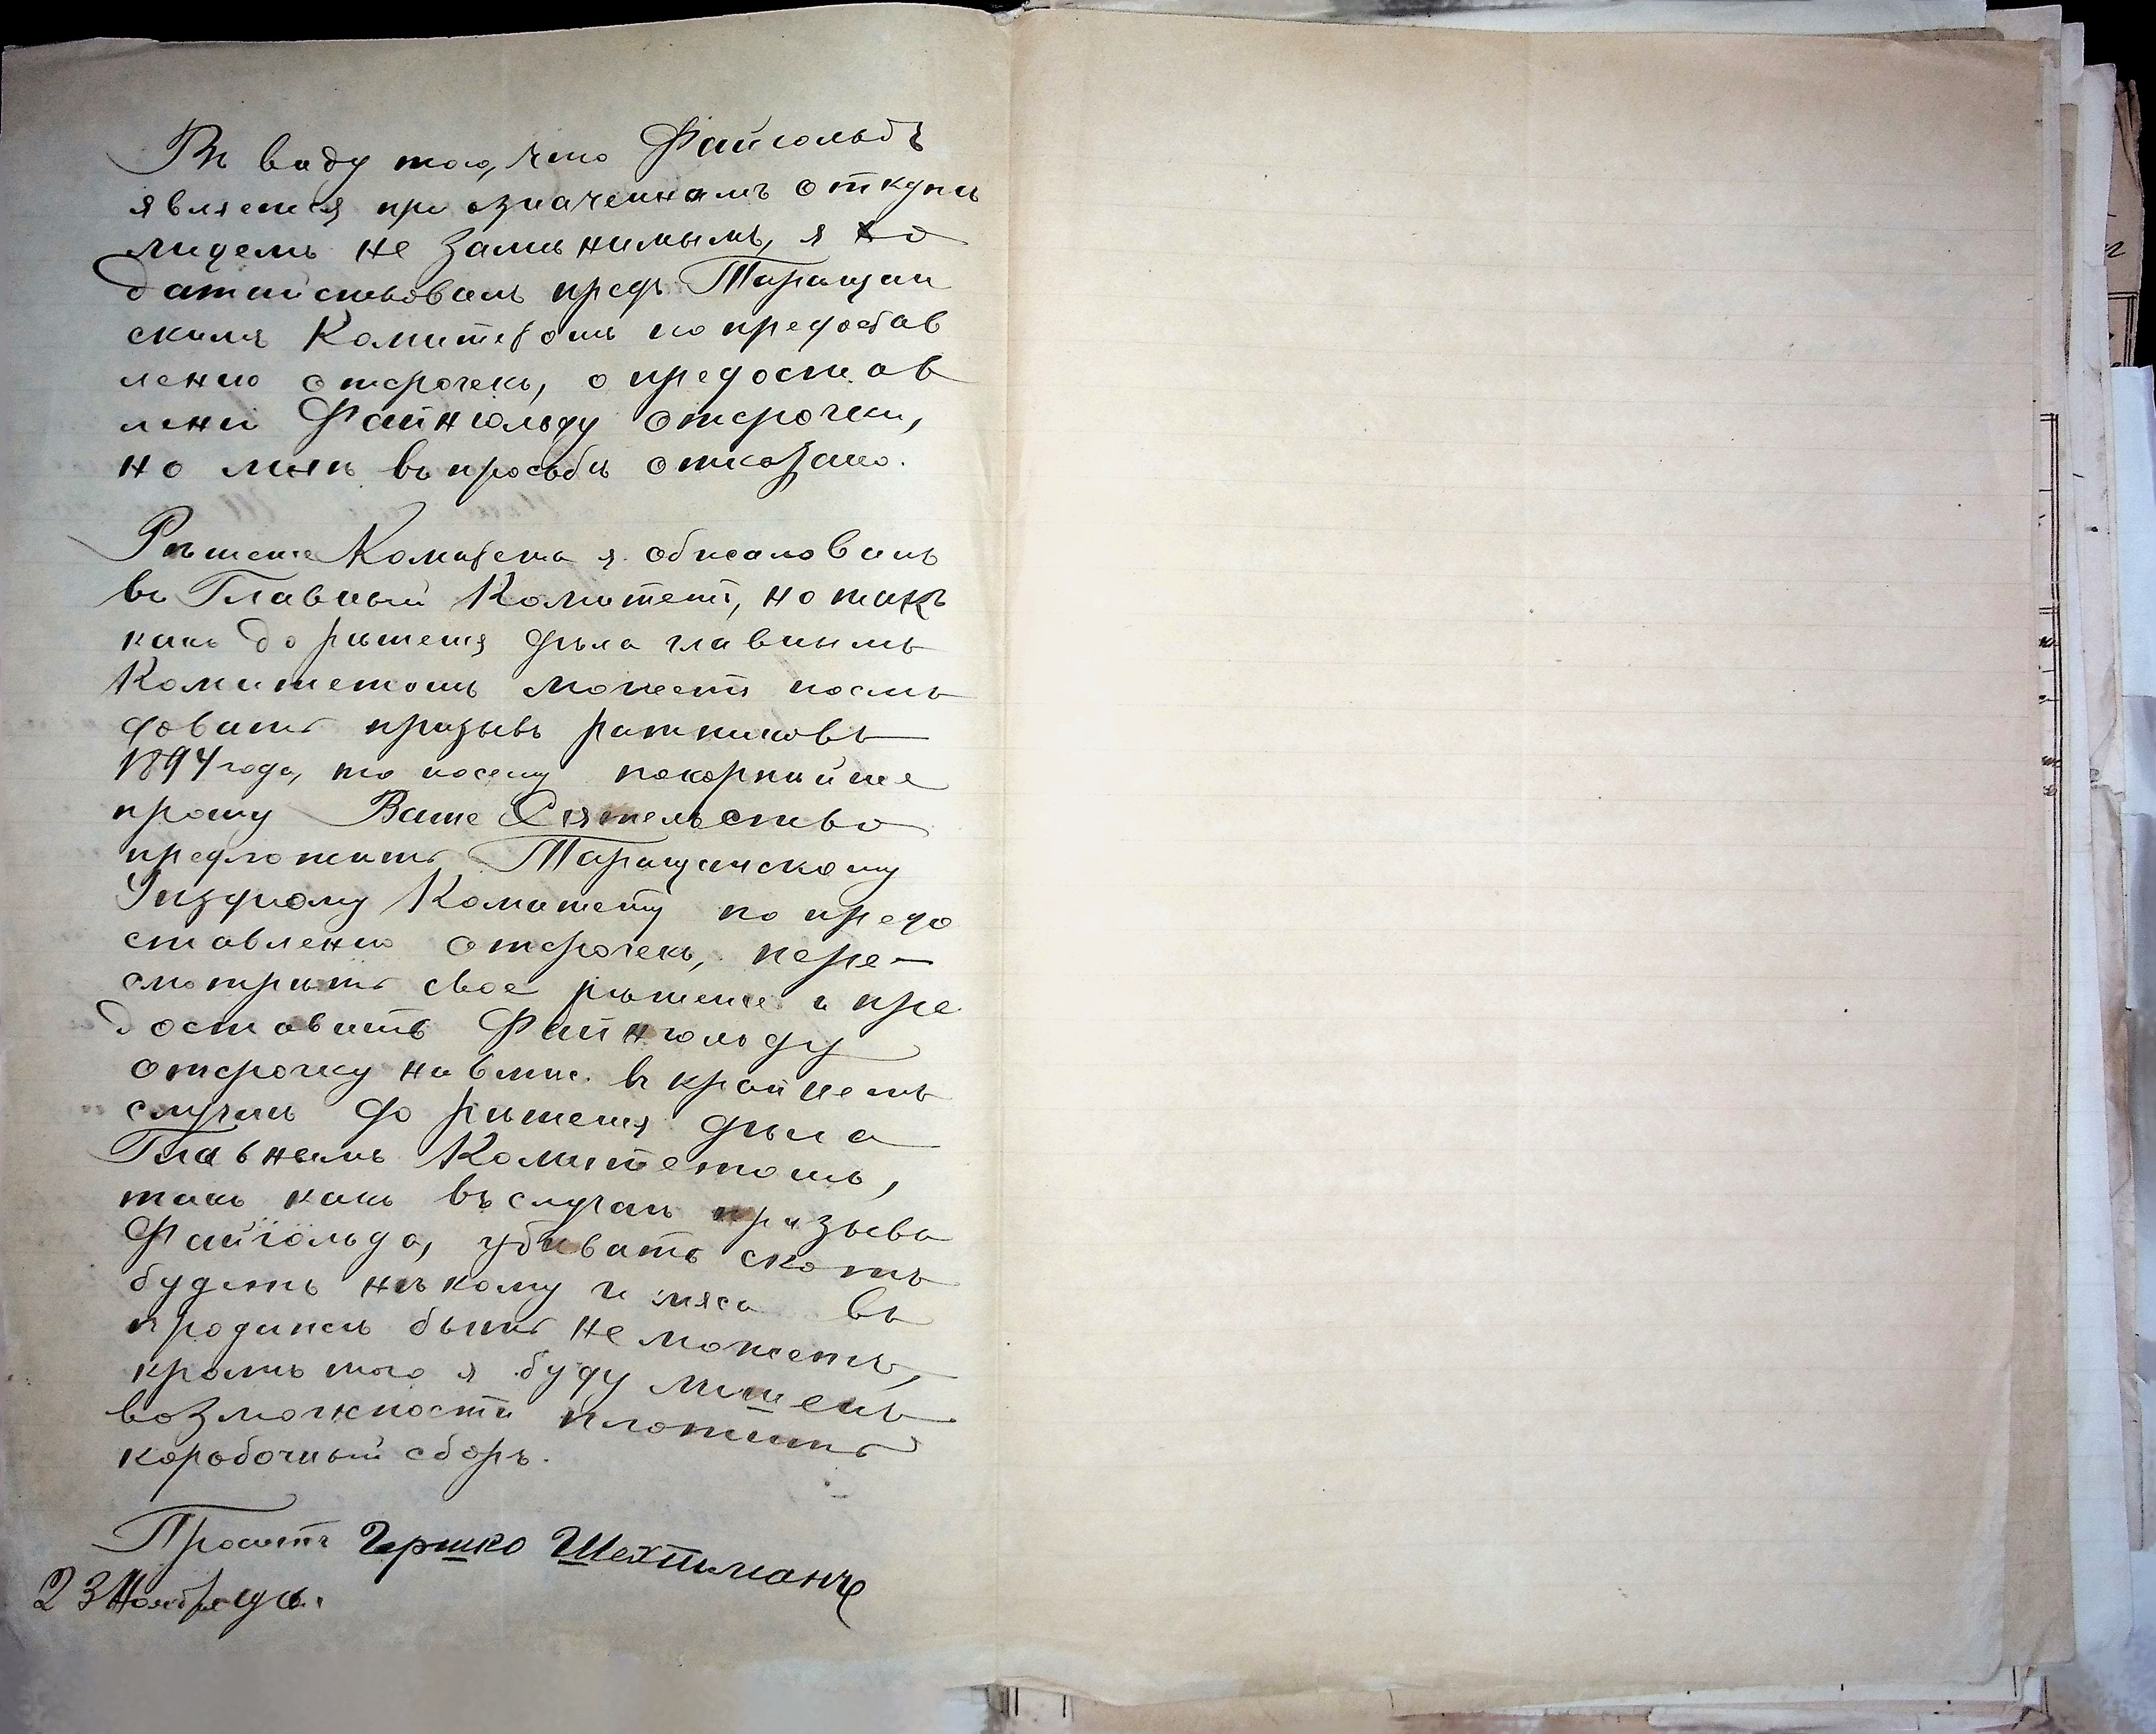 Въ виду того, что Файгольдъ
является при означенномъ откупѣ
лицемъ не замѣнимымъ, я хо
датайствовалъ предъ Таращан
скимъ Комитетомъ по предостав
ленію отсрочекъ, о предостав
леніи Файнгольду отсрочки,
но мнѣ въ просьбѣ отказано.
Рѣшеніе Комитета я обжаловалъ
въ Главный Комитетъ, но такъ
какъ до рѣшенія дѣла главнымъ
Комитетомъ можетъ послѣ
довать призывъ ратниковъ
1894 года, то посему покорнѣйше
прошу Ваше Сіятельство
предложить Таращанскому
Уѣздному Комитету по предо
ставленію отсрочекъ, пере-
смотрѣть свое рѣшеніе и пре
доставить Файнгольду
отсрочку на 6 мѣс. въ крайнемъ
случаѣ до рѣшенія дѣла
Главнымъ Комитетомъ,
такъ какъ въ случаѣ призыва
Файгольда, убивать скотъ
будетъ нѣкому и мяса въ
продажѣ быть не можетъ,
кромѣ того я буду лишенъ
возможности платить
коробочный сборъ.
Проситъ Гершко Шехтманъ
23 Ноября